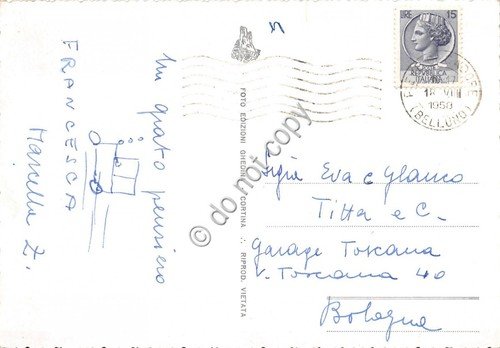 Un grato pensiero
FRANCESCA
Marcella Z.
FOTO EDIZIONI GHEDINA - CORTINA ∴ RIPROD. VIETATA
LIRE 15
REPVBBLICA
ITALIANA
18 VII
1958
(BELLUNO)
Sig.ra Eva e Glauco
Titta e C.
Garage Toscana
V. Toscana 40
Bologna
do not copy